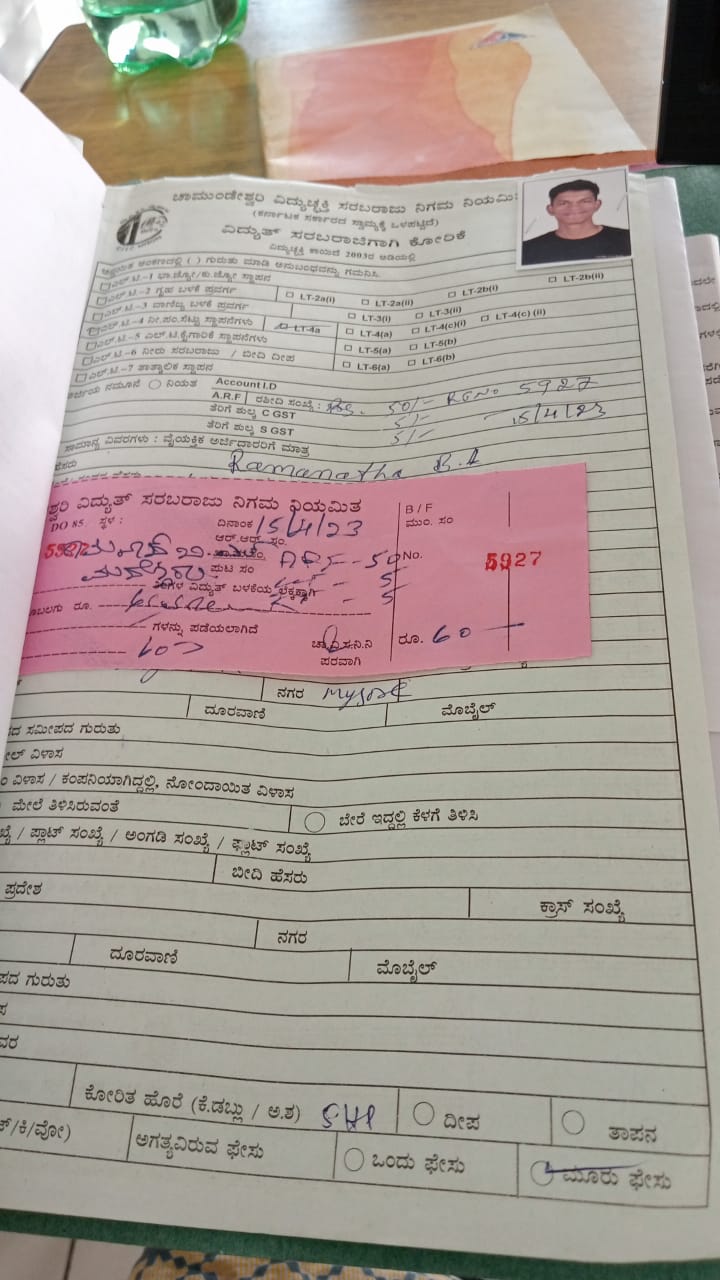 ಚಾಮುಂಡೇಶ್ವರಿ ವಿದ್ಯುಚ್ಛಕ್ತಿ ಸರಬರಾಜು ನಿಗಮ ನಿಯಮಿ
(ಕರ್ನಾಟಕ ಸರ್ಕಾರದ ಸ್ವಾಮ್ಯಕ್ಕೆ ಒಳಪಟ್ಟಿದೆ)
ವಿದ್ಯುತ್ ಸರಬರಾಜಿಗಾಗಿ ಕೋರಿಕೆ
ವಿದ್ಯುಚ್ಛಕ್ತಿ ಕಾಯಿದೆ 2003ರ ಅಡಿಯಲ್ಲಿ
ಅಂಕಣದಲ್ಲಿ ( ) ಗುರುತು ಮಾಡಿ ಅನುಬಂಧವನ್ನು ಗಮನಿಸಿ
ಎಲ್.ಟಿ-1 ಭಾ.ಜ್ಯೋ/ಕು.ಜ್ಯೋ ಸ್ಥಾಪನ
ಎಲ್.ಟಿ-2 ಗೃಹ ಬಳಕೆ ಪ್ರವರ್ಗ LT-2a(i) LT-2a(ii) LT-2b(i) LT-2b(ii)
ಎಲ್.ಟಿ-3 ವಾಣಿಜ್ಯ ಬಳಕೆ ಪ್ರವರ್ಗ LT-3(i) LT-3(ii)
ಎಲ್.ಟಿ-4 ನೀ.ಪಂ.ಸೆಟ್ಟು ಸ್ಥಾಪನೆಗಳು LT-4a LT-4(a) LT-4(c)(i) LT-4(c) (ii)
ಎಲ್.ಟಿ-5 ಎಲ್.ಟಿ.ಕೈಗಾರಿಕೆ ಸ್ಥಾಪನೆಗಳು LT-5(a) LT-5(b)
ಎಲ್.ಟಿ-6 ನೀರು ಸರಬರಾಜು / ಬೀದಿ ದೀಪ LT-6(a) LT-6(b)
ಎಲ್.ಟಿ-7 ತಾತ್ಕಾಲಿಕ ಸ್ಥಾಪನ
ಅರ್ಜಿಯ ನಮೂನೆ ನಿಯತ Account I.D
A.R.F ರಶೀದಿ ಸಂಖ್ಯೆ : 50/- RG No 5927
ತೆರಿಗೆ ಶುಲ್ಕ C GST 5/- 15/4/23
ತೆರಿಗೆ ಶುಲ್ಕ S GST 5/-
ಸಾಮಾನ್ಯ ವಿವರಗಳು : ವೈಯಕ್ತಿಕ ಅರ್ಜಿದಾರರಿಗೆ ಮಾತ್ರ
ಹೆಸರು Ramanatha B.A
ಶ್ವರಿ ವಿದ್ಯುತ್ ಸರಬರಾಜು ನಿಗಮ ನಿಯಮಿತ
DO 85 ಸ್ಥಳ : ದಿನಾಂಕ 15/4/23
ಆರ್.ಆರ್. ಸಂ.
ಪುಟ ಸಂ ARF - 50
5
ವಿದ್ಯುತ್ ಬಳಕೆಯ ಲೆಕ್ಕಕ್ಕಾಗಿ 5
ರೂ.
ಗಳನ್ನು ಪಡೆಯಲಾಗಿದೆ
60
ಚಾ.ವಿ.ಸ.ನಿ.ನಿ
ಪರವಾಗಿ
B / F
ಮುಂ. ಸಂ
No. 5927
ರೂ. 60
ನಗರ Mysore
ದೂರವಾಣಿ ಮೊಬೈಲ್
ದ ಸಮೀಪದ ಗುರುತು
ಲ್ ವಿಳಾಸ
ವಿಳಾಸ / ಕಂಪನಿಯಾಗಿದ್ದಲ್ಲಿ, ನೋಂದಾಯಿತ ವಿಳಾಸ
ಮೇಲೆ ತಿಳಿಸಿರುವಂತೆ ಬೇರೆ ಇದ್ದಲ್ಲಿ ಕೆಳಗೆ ತಿಳಿಸಿ
ಖ್ಯೆ / ಪ್ಲಾಟ್ ಸಂಖ್ಯೆ / ಅಂಗಡಿ ಸಂಖ್ಯೆ / ಫ್ಲಾಟ್ ಸಂಖ್ಯೆ
ಬೀದಿ ಹೆಸರು
ಪ್ರದೇಶ ಕ್ರಾಸ್ ಸಂಖ್ಯೆ
ನಗರ
ದೂರವಾಣಿ ಮೊಬೈಲ್
ಪದ ಗುರುತು
ವರ
ಕೋರಿತ ಹೊರೆ (ಕೆ.ಡಬ್ಲು / ಅ.ಶ) 5 HP ದೀಪ ತಾಪನ
ಕ್/ಕಿ/ವೋ) ಅಗತ್ಯವಿರುವ ಫೇಸು ಒಂದು ಫೇಸು ಮೂರು ಫೇಸು